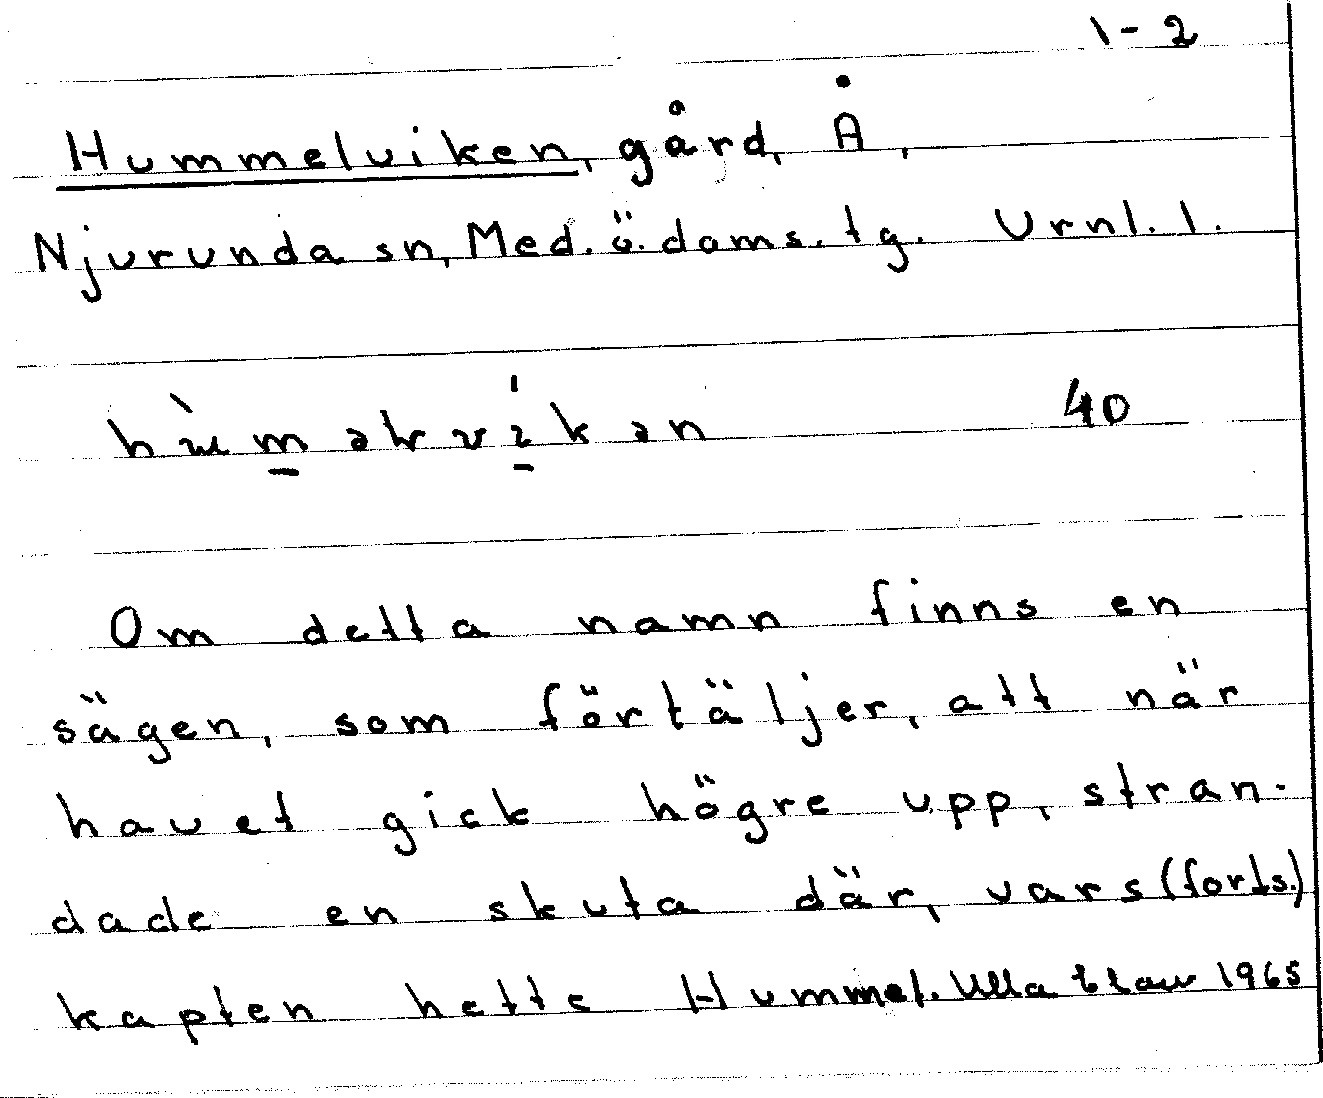 1-2
Hummelviken, gård, Å,
Njurunda sn, Med.ö.doms.tg. Urnl. 1.
40
Om detta namn finns en
sägen, som förtäljer, att när
havet gick högre upp, stran-
dade en skuta där, vars (forts.)
kapten hette Hummel. Ulla 1965